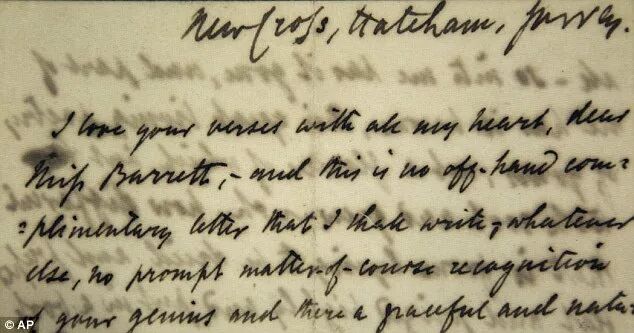 New Cross, Hatcham, Surrey.
I love your verses with all my heart, dear
Miss Barrett,- and this is no off-hand com=
=plimentary letter that I shall write,-whatever
else, no prompt matter-of-course recognition
of your genius and there a graceful and natu
© AP